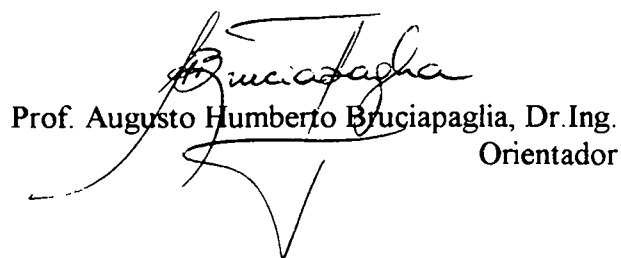 Bruciapaglia
Prof. Augusto Humberto Bruciapaglia, Dr.Ing.
Orientador